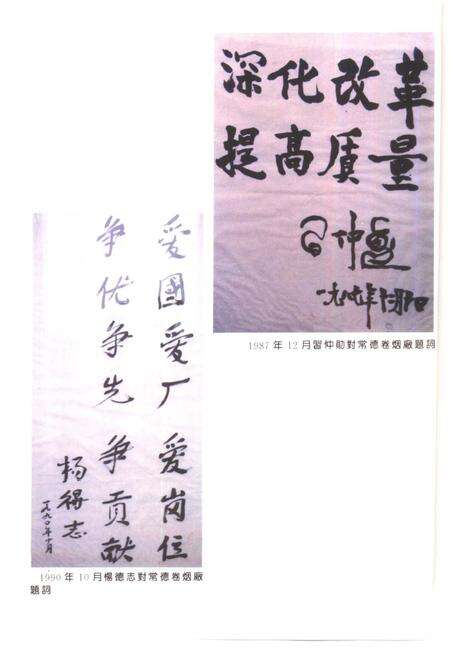 深化改革
提高质量
1987年12月習仲勋對常德卷烟廠題詞
爱國爱厂爱岗位
争优争先争贡献
杨得志
一九九〇年十月
1990年10月楊德志對常德卷烟廠
題詞